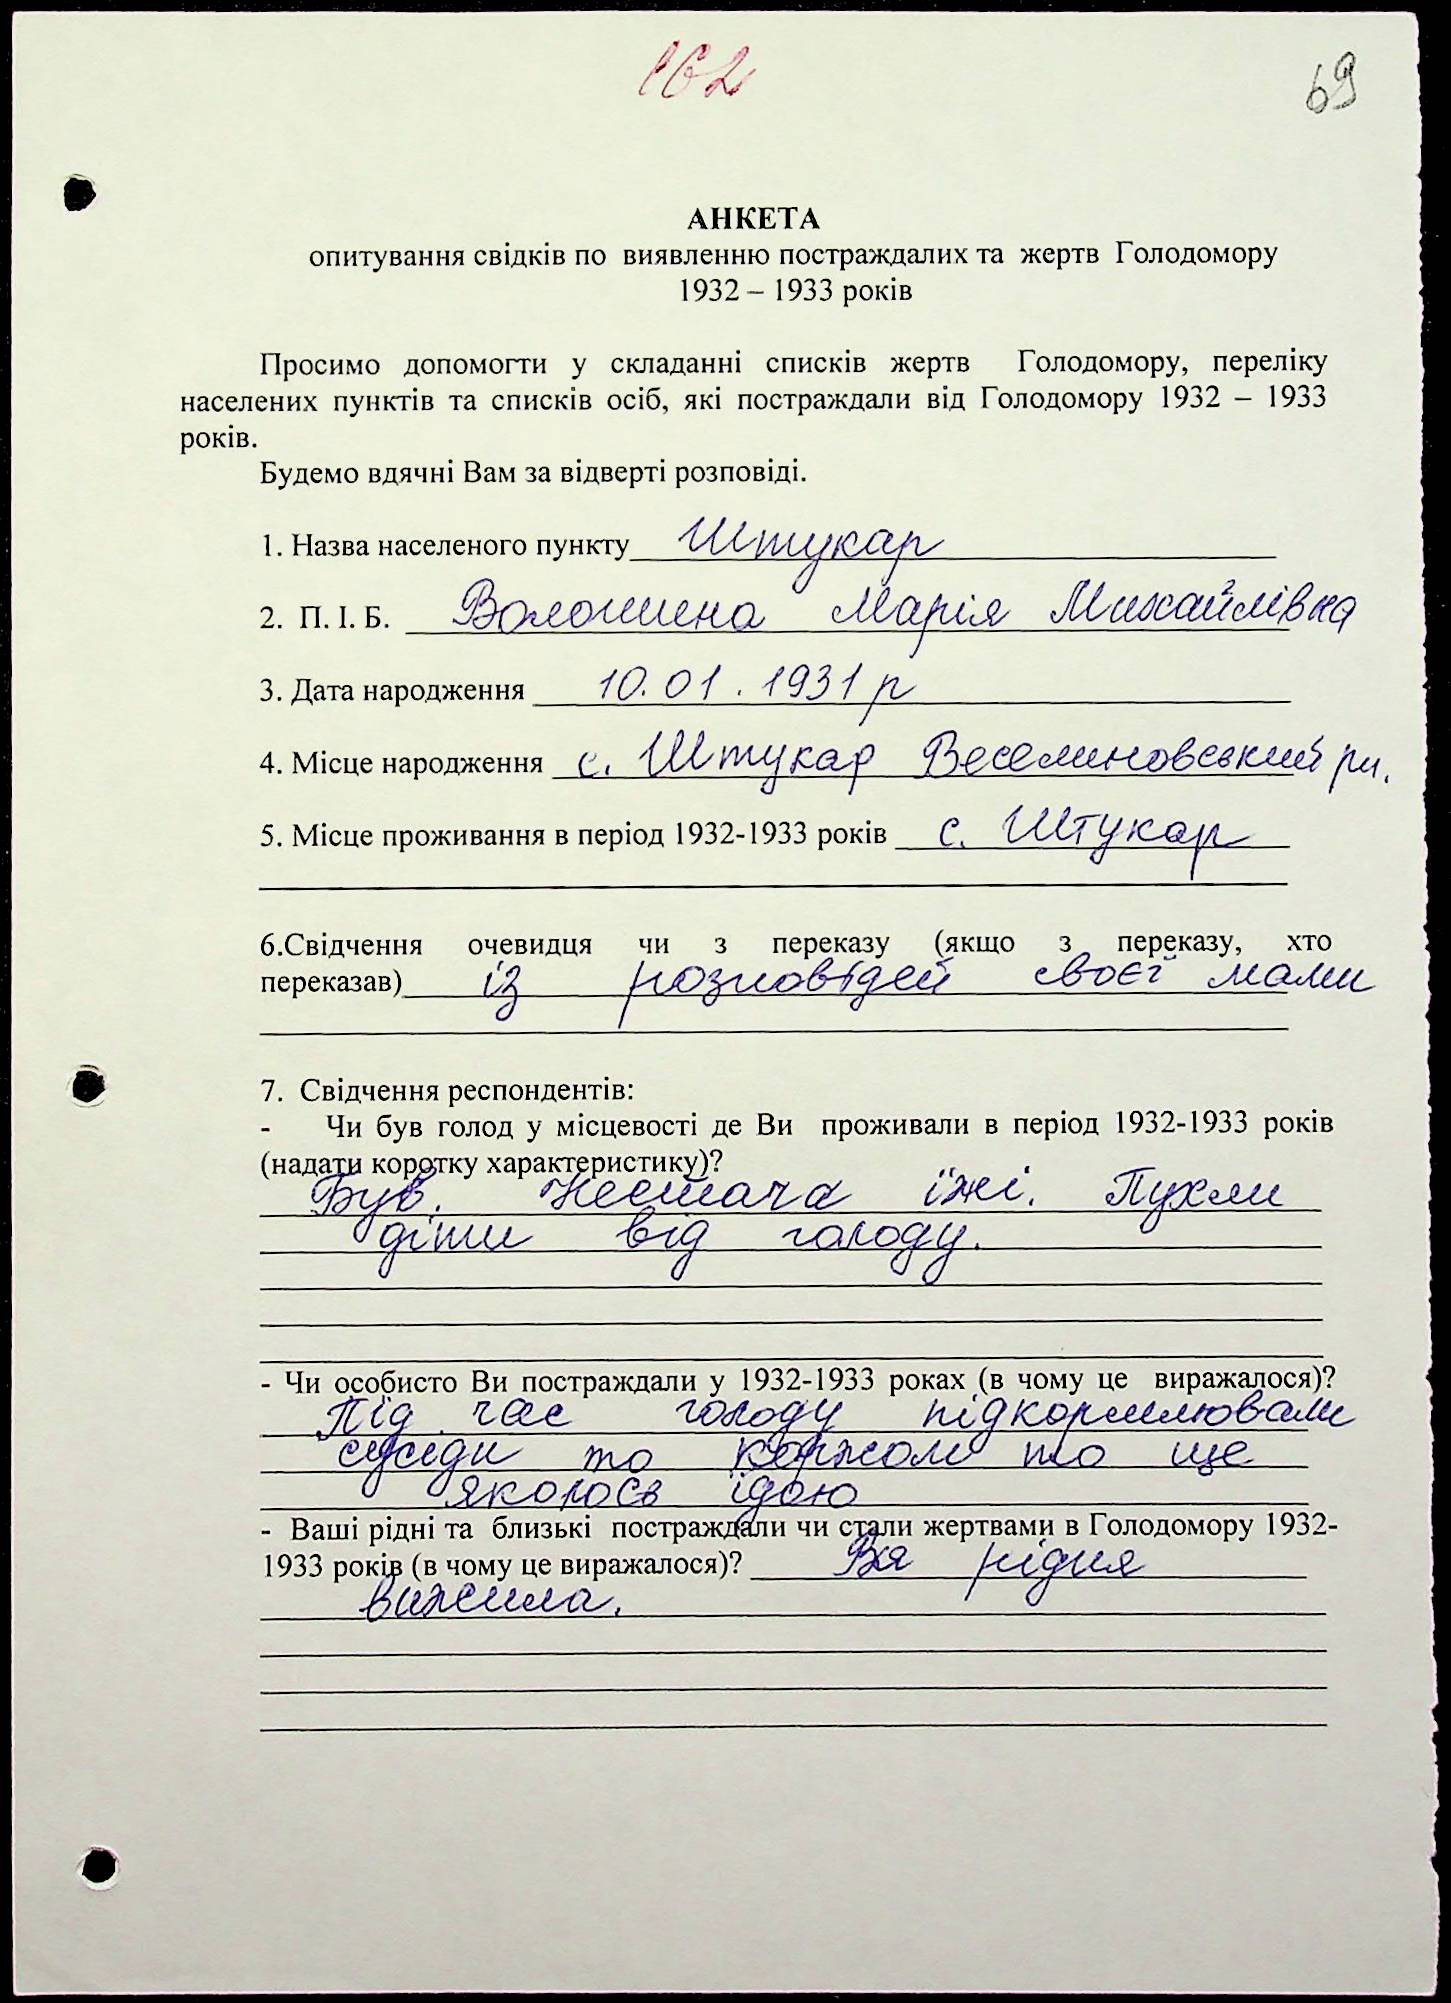 162
69
АНКЕТА
опитування свідків по виявленню постраждалих та жертв Голодомору
1932 – 1933 років
Просимо допомогти у складанні списків жертв Голодомору, переліку
населених пунктів та списків осіб, які постраждали від Голодомору 1932 – 1933
років.
Будемо вдячні Вам за відверті розповіді.
1. Назва населеного пункту Штукар
2. П. І. Б. Волошина Марія Михайлівна
3. Дата народження 10.01.1931 р
4. Місце народження с. Штукар Веселиновський рн.
5. Місце проживання в період 1932-1933 років с. Штукар
6.Свідчення очевидця чи з переказу (якщо з переказу, хто
переказав) із розповідей своєї мами
7. Свідчення респондентів:
- Чи був голод у місцевості де Ви проживали в період 1932-1933 років
(надати коротку характеристику)?
Був. Нестача їжі. Пухли
діти від голоду.
- Чи особисто Ви постраждали у 1932-1933 роках (в чому це виражалося)?
Під час голоду підкормлювали
сусіди то коржом то ще
якоюсь їдою
- Ваші рідні та близькі постраждали чи стали жертвами в Голодомору 1932-
1933 років (в чому це виражалося)? Вся рідня
вижила.